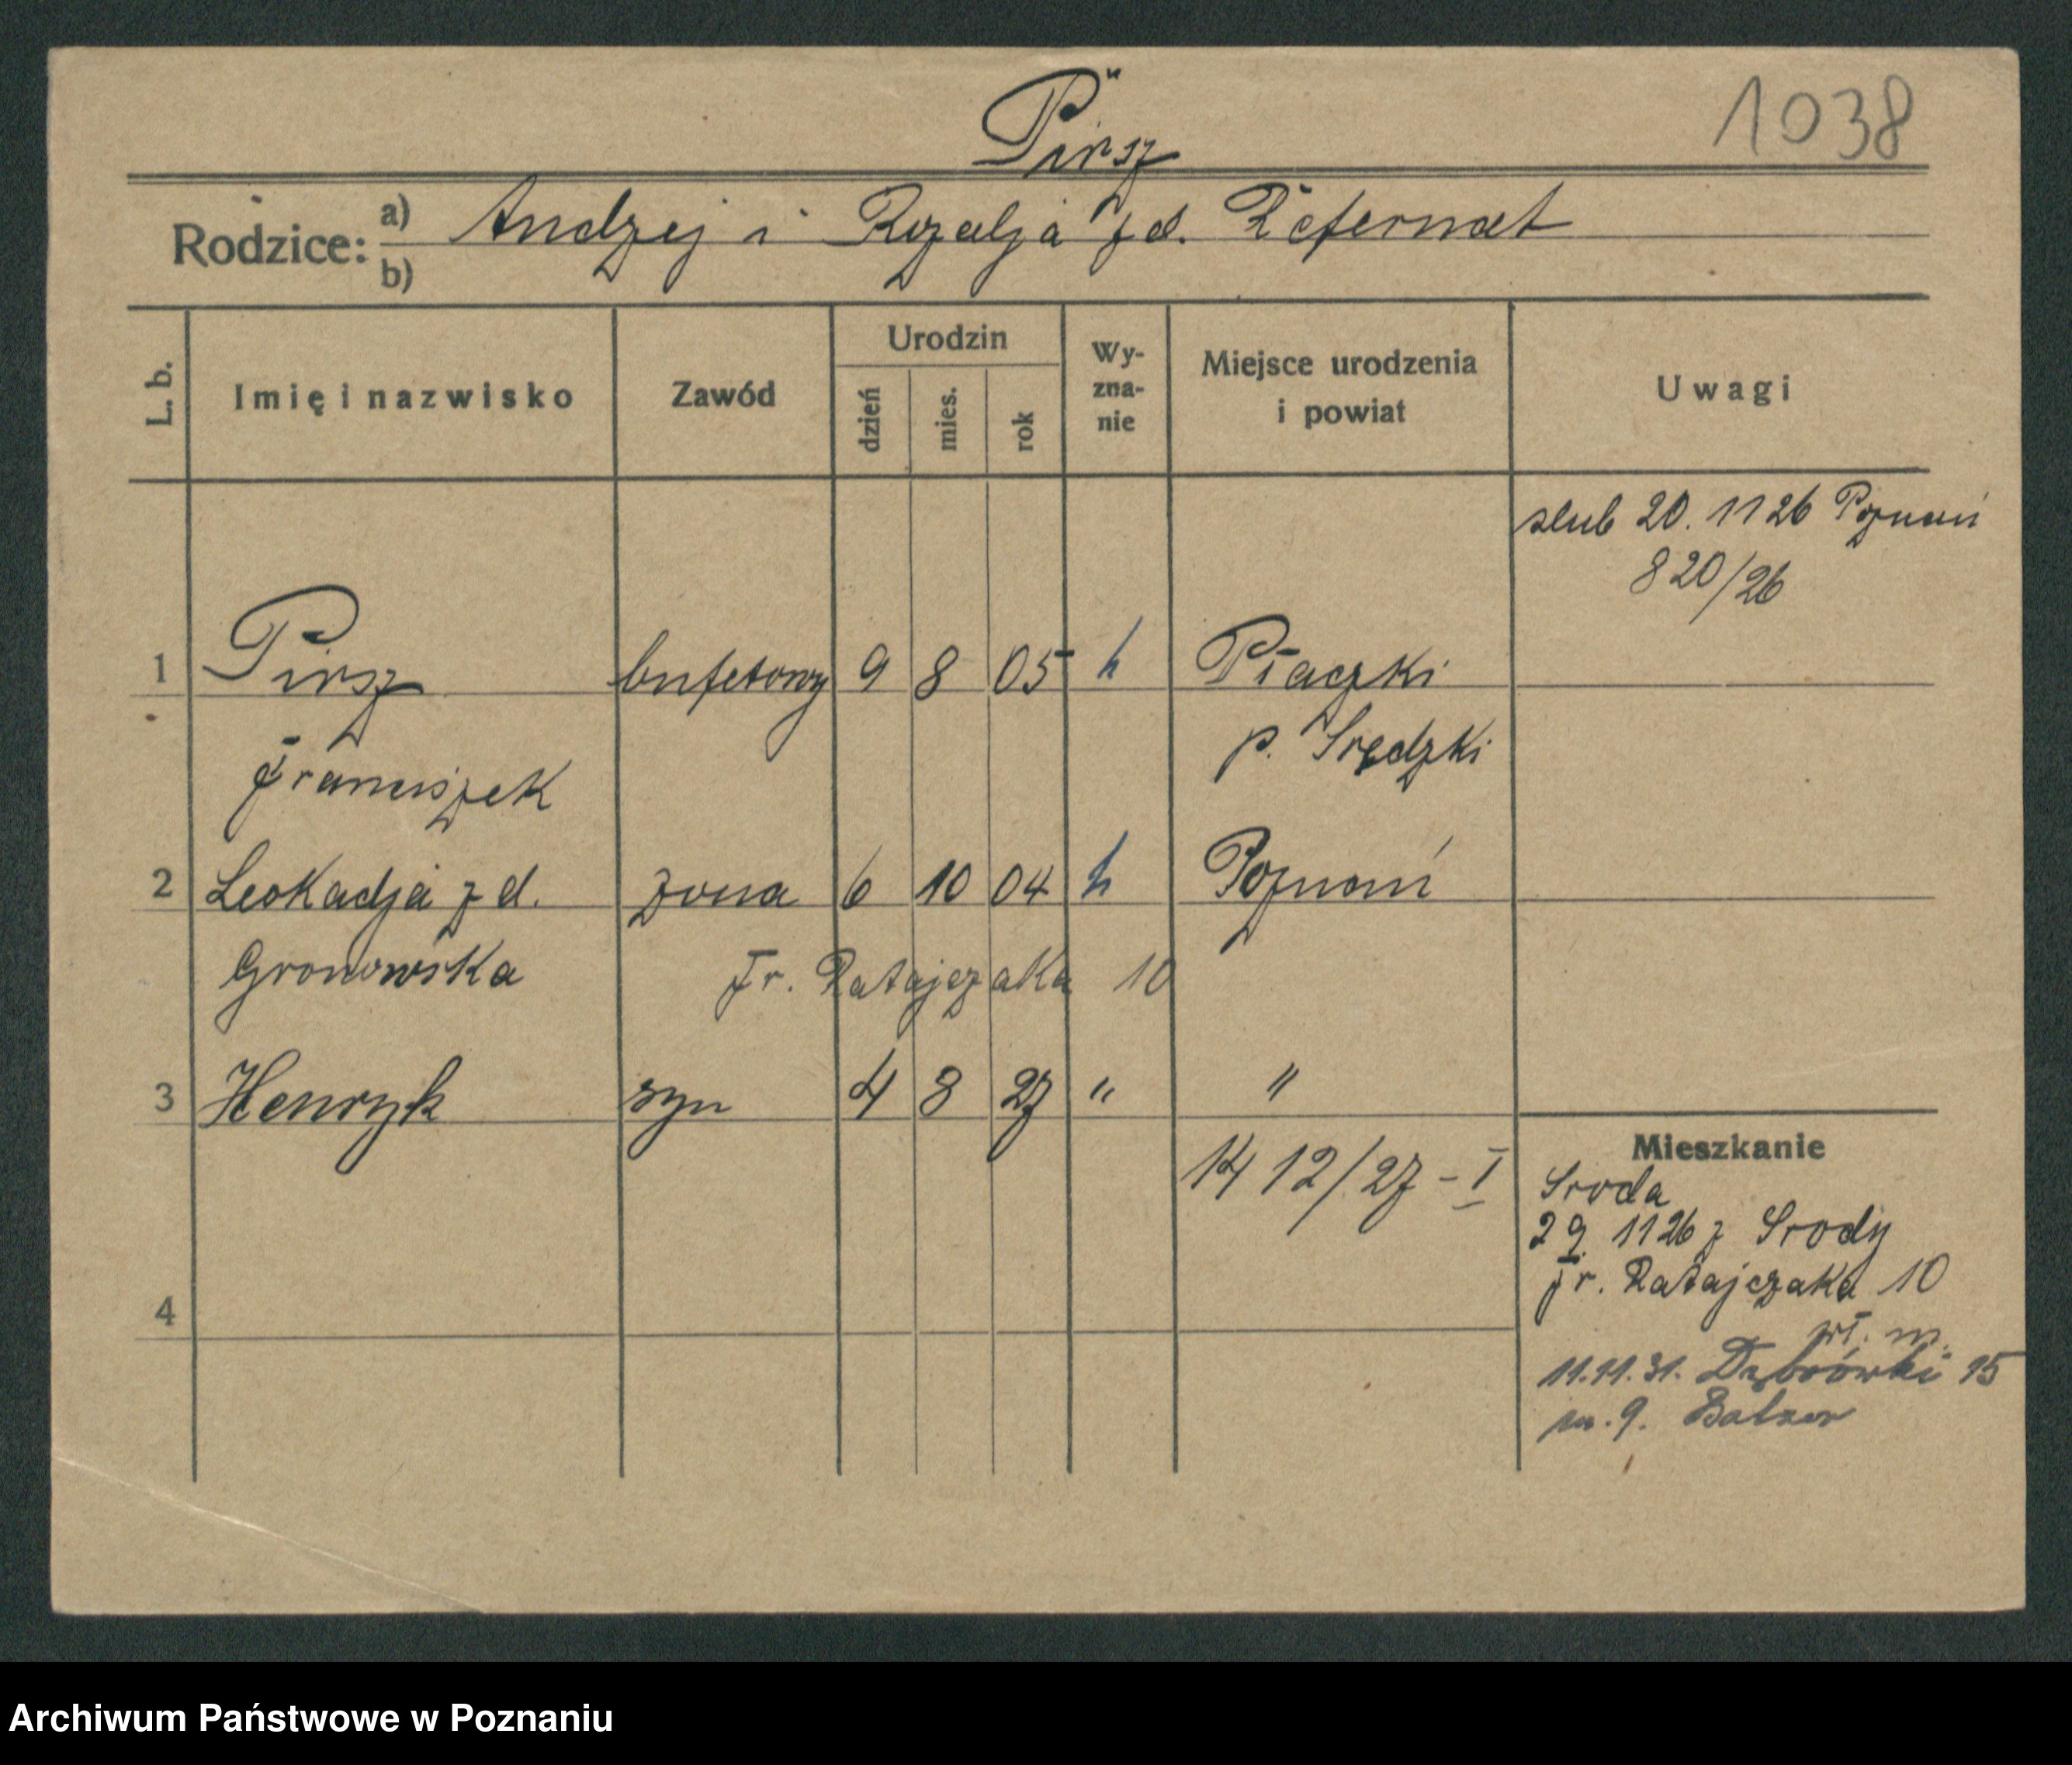 Pirsz
1038
Rodzice:
a) Andzej i Rozalja z d.
b)
L. b.
Imię i nazwisko
Zawód
Urodzin
dzień
mies.
rok
Wy-
zna-
nie
Miejsce urodzenia
i powiat
Uwagi
slub 20. 11 26 Poznań
820/26
1 Pirsz bufetowy 9 8 05 Płaczki
Franciszek p. Sredzki
2 Leokadja z d. zona 6 10 04 Poznań
Gronowska Fr. Ratajczaka 10
3 Henryk syn 4 8 27 " "
14 12/27 - I
4
Mieszkanie
Sroda
29 11 26 z Srody
Fr. Ratajczaka 10
wł. m.
11.11.31. Dąbrówki 15
m. 9.
Archiwum Państwowe w Poznaniu